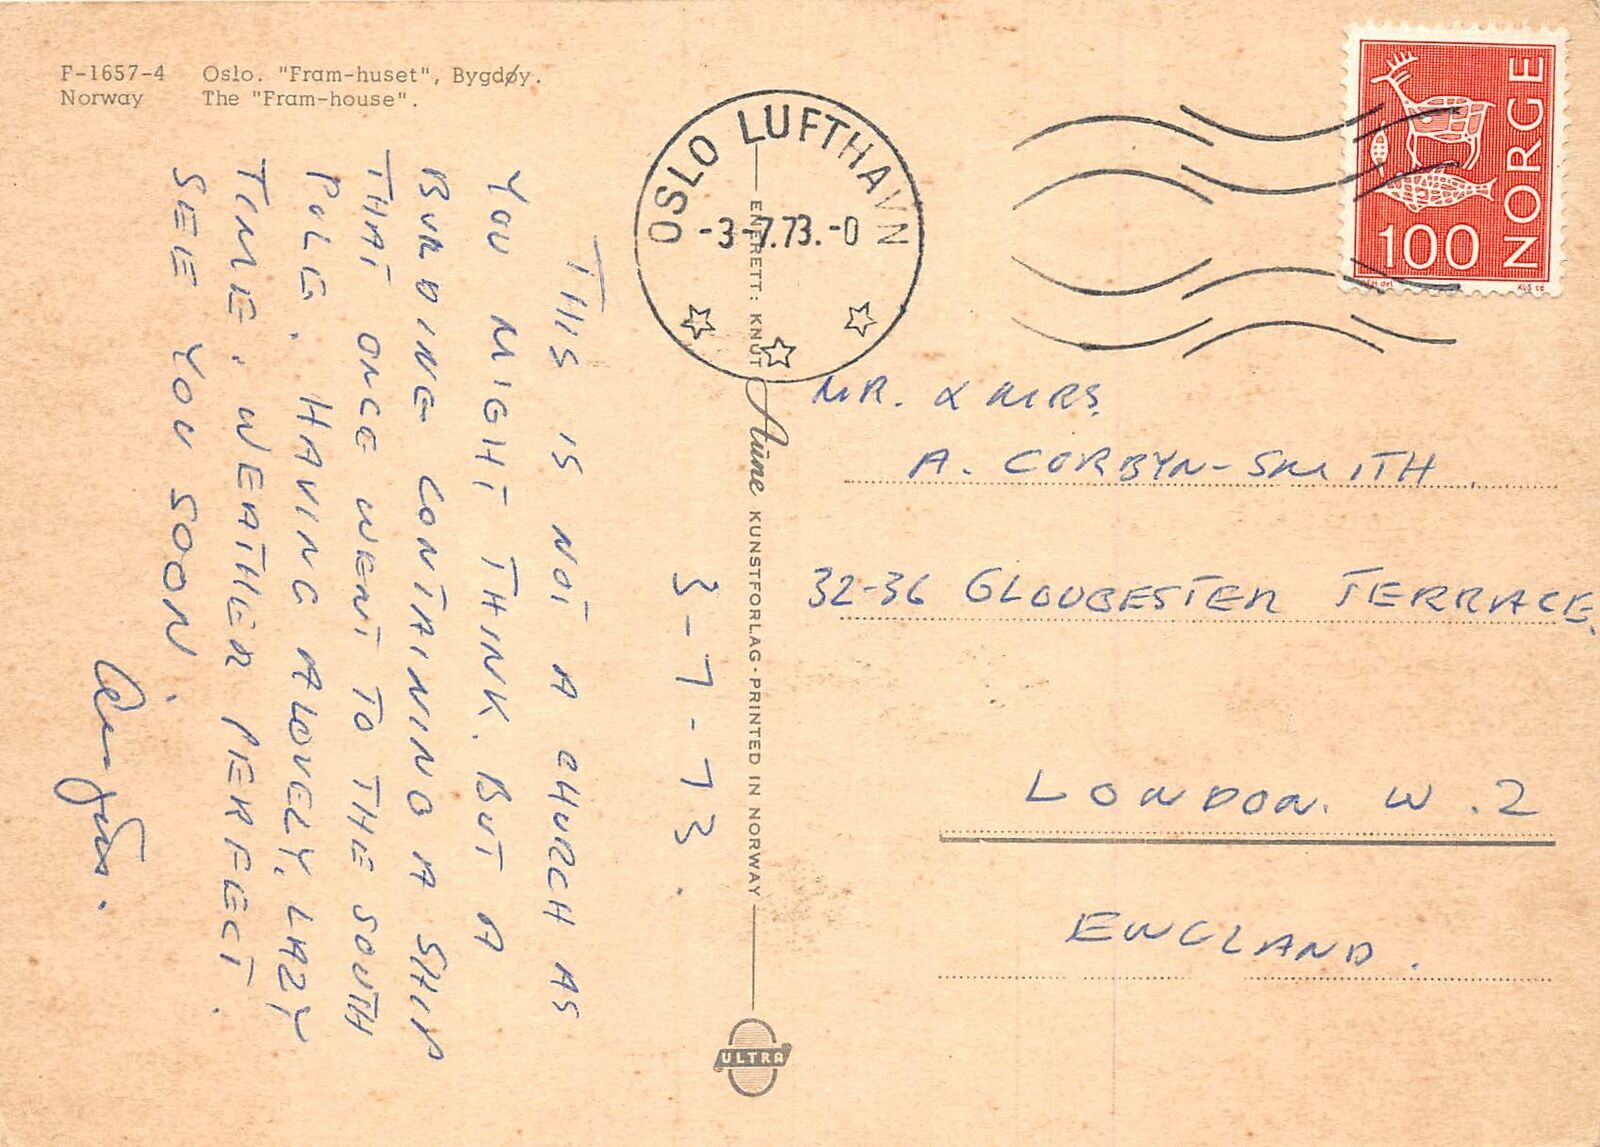 F-1657-4 Oslo. "Fram-huset", Bygdøy.
Norway The "Fram-house".
OSLO LUFTHAVN
-3-7.73.-0
NORGE
100
3-7-73.
THIS IS NOT A CHURCH AS
YOU MIGHT THINK. BUT A
BUILDING CONTAINING A SHIP
THAT ONCE WENT TO THE SOUTH
POLE. HAVING A LOVELY, LAZY
TIME, WEATHER PERFECT.
SEE YOU SOON.
ENERETT: KNUT Aune KUNSTFORLAG - PRINTED IN NORWAY
ULTRA
MR. & MRS.
A. CORBYN-SMITH.
32-36 GLOUCESTER TERRACE,
LONDON. W.2
ENGLAND.